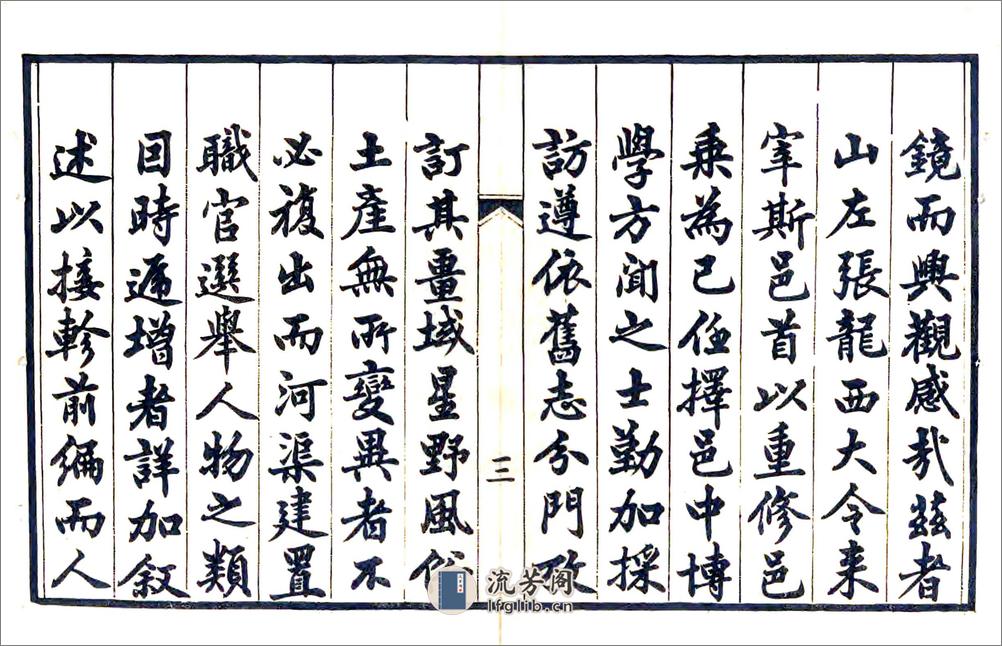 鏡而興觀感哉茲者
山左張龍西大令来
宰斯邑首以重修邑
乗為己任擇邑中博
學方聞之士勤加採
訪遵依舊志分門攷
三
訂其畺域星野風俗
土產無所變異者不
必複出而河渠建置
職官選舉人物之類
因時遞增者詳加叙
述以接軫前編而人
流芳阁
lfglib.cn